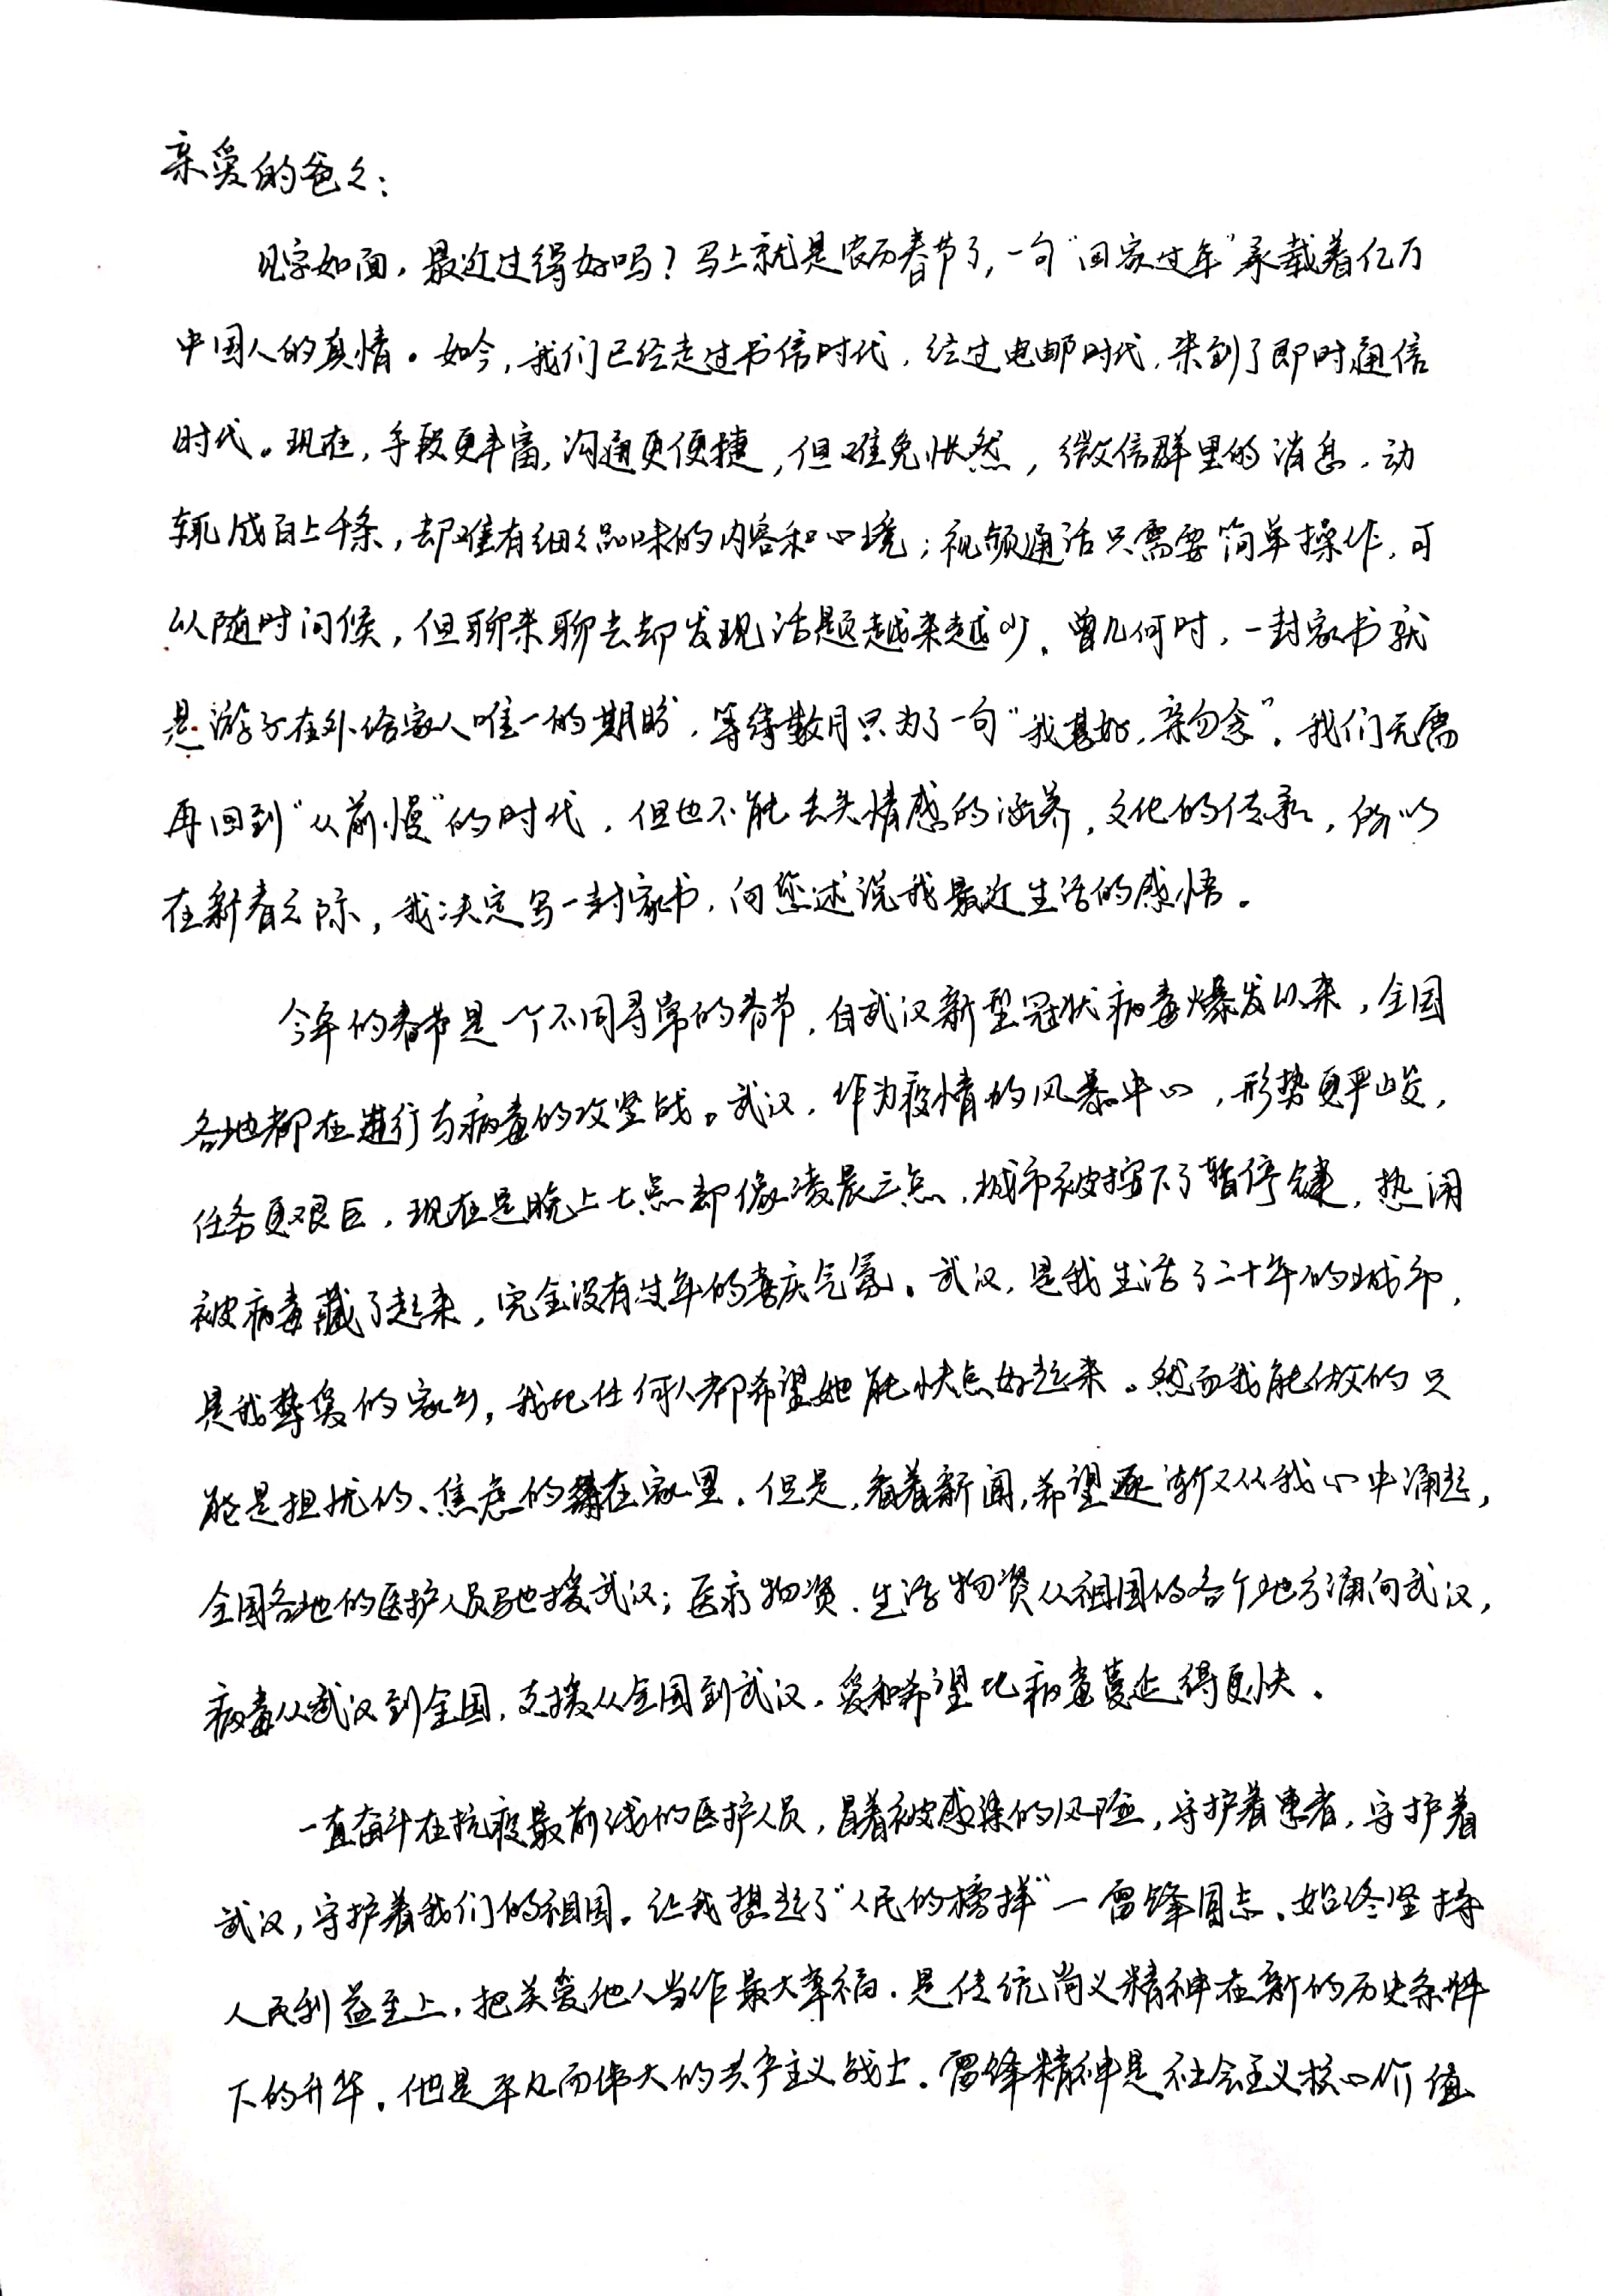 亲爱的爸々：
见字如面，最近过得好吗？马上就是农历春节了，一句“回家过年”承载着亿万
中国人的真情。如今，我们已经走过书信时代，经过电邮时代，来到了即时通信
时代。现在，手段更丰富，沟通更便捷，但难免怅然，微信群里的消息，动
辄成百上千条，却难有细々品味的内容和心境；视频通话只需要简单操作，可
以随时问候，但聊来聊去却发现话题越来越少。曾几何时，一封家书就
是游子在外给家人唯一的期盼，等待数月只为了一句“我甚好，亲勿念”。我们无需
再回到“从前慢”的时代，但也不能丢失情感的涵养，文化的传承，所以
在新春之际，我决定写一封家书，向您述说我最近生活的感悟。
今年的春节是一个不同寻常的春节，自武汉新型冠状病毒爆发以来，全国
各地都在进行与病毒的攻坚战。武汉，作为疫情的风暴中心，形势更严峻，
任务更艰巨，现在是晚上七点却像凌晨三点，城市被按下了暂停键，热闹
被病毒藏了起来，完全没有过年的喜庆气氛。武汉，是我生活了二十年的城市，
是我挚爱的家乡，我比任何人都希望她能快点好起来。然而我能做的只
能是担忧的、焦虑的待在家里。但是，看着新闻，希望逐渐又从我心中涌起，
全国各地的医护人员驰援武汉；医疗物资、生活物资从祖国的各个地方涌向武汉，
病毒从武汉到全国，支援从全国到武汉，爱和希望比病毒蔓延得更快。
一直奋斗在抗疫最前线的医护人员，冒着被感染的风险，守护着患者，守护着
武汉，守护着我们的祖国。让我想起了“人民的榜样”一雷锋同志、始终坚持
人民利益至上，把关爱他人当作最大幸福，是传统尚义精神在新的历史条件
下的升华。他是平凡而伟大的共产主义战士。雷锋精神是社会主义核心价值